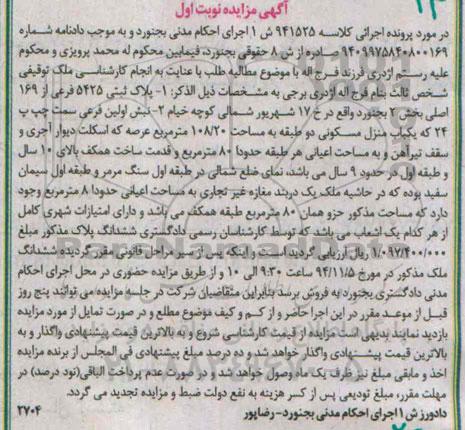 ۲۳
آگهی مزایده نوبت اول
در مورد پرونده اجرائی کلاسه ۹۴۱۵۲۵ ش ۱ اجرای احکام مدنی بجنورد و به موجب دادنامه شماره
۹۴۰۹۹۷۵۸۴۰۸۰۰۱۶۹ صادره از ش ۸ حقوقی بجنورد، فیمابین محکوم له محمد پرویزی و محکوم
علیه رستم اژدری فرزند فرج اله با موضوع مطالبه طلب با عنایت به انجام کارشناسی ملک توقیفی
شخص ثالث بنام فرج اله اژدری برجی به مشخصات ذیل الذکر: ۱- پلاک ثبتی ۵۴۲۵ فرعی از ۱۶۹
اصلی بخش ۲ بجنورد واقع در خ ۱۷ شهریور شمالی کوچه خیام ۲- نبش اولین فرعی سمت چپ پ
۲۴ که یکباب منزل مسکونی دو طبقه به مساحت ۱۰۸/۲۰ مترمربع عرصه که اسکلت دیوار آجری و
سقف تیرآهن و به مساحت اعیانی هر طبقه حدودا ۸۰ مترمربع و قدمت ساخت همکف بالای ۱۰ سال
و طبقه اول در حدود ۹ سال می باشد، نمای ضلع شمالی در طبقه اول سنگ مرمر و طبقه اول سیمان
سفید بوده که در حاشیه ملک یک دربند مغازه غیر تجاری به مساحت اعیانی حدودا ۸ مترمربع وجود
دارد که مساحت مذکور جزو همان ۸۰ مترمربع طبقه همکف می باشد و دارای امتیازات شهری کامل
از هر کدام یک انشعاب می باشد که توسط کارشناسان رسمی دادگستری ششدانگ پلاک مذکور مبلغ
۱/۰۹۷/۴۰۰/۰۰۰ ریال ارزیابی گردید است و اینکه پس از سیر مراحل قانونی مقرر گردیده ششدانگ
ملک مذکور در مورخ ۹۴/۱۱/۵ ساعت ۹:۳۰ الی ۱۰ و از طریق مزایده حضوری در محل اجرای احکام
مدنی دادگستری بجنورد به فروش برسد بنابراین متقاضیان شرکت در جلسه مزایده می توانند پنج روز
قبل از موعد مقرر در این اجرا حاضر و از کم و کیف موضوع مطلع و در صورت تمایل از مورد مزایده
بازدید نمایند بدیهی ست مزایده از قیمت کارشناسی شروع و به بالاترین قیمت پیشنهادی واگذار و به
بالاترین قیمت پیشنهادی واگذار خواهد شد و ده درصد مبلغ پیشنهادی فی المجلس از برنده مزایده
اخذ و مابقی مبلغ نیز ظرف یک ماه وصول خواهد شد و در صورت عدم پرداخت الباقی(نود درصد) در
مهلت مقرر، مبلغ تودیعی پس از کسر هزینه به نفع دولت ضبط و مزایده تجدید می گردد.
دادورز ش ۱ اجرای احکام مدنی بجنورد- رضاپور
۲۷۰۴